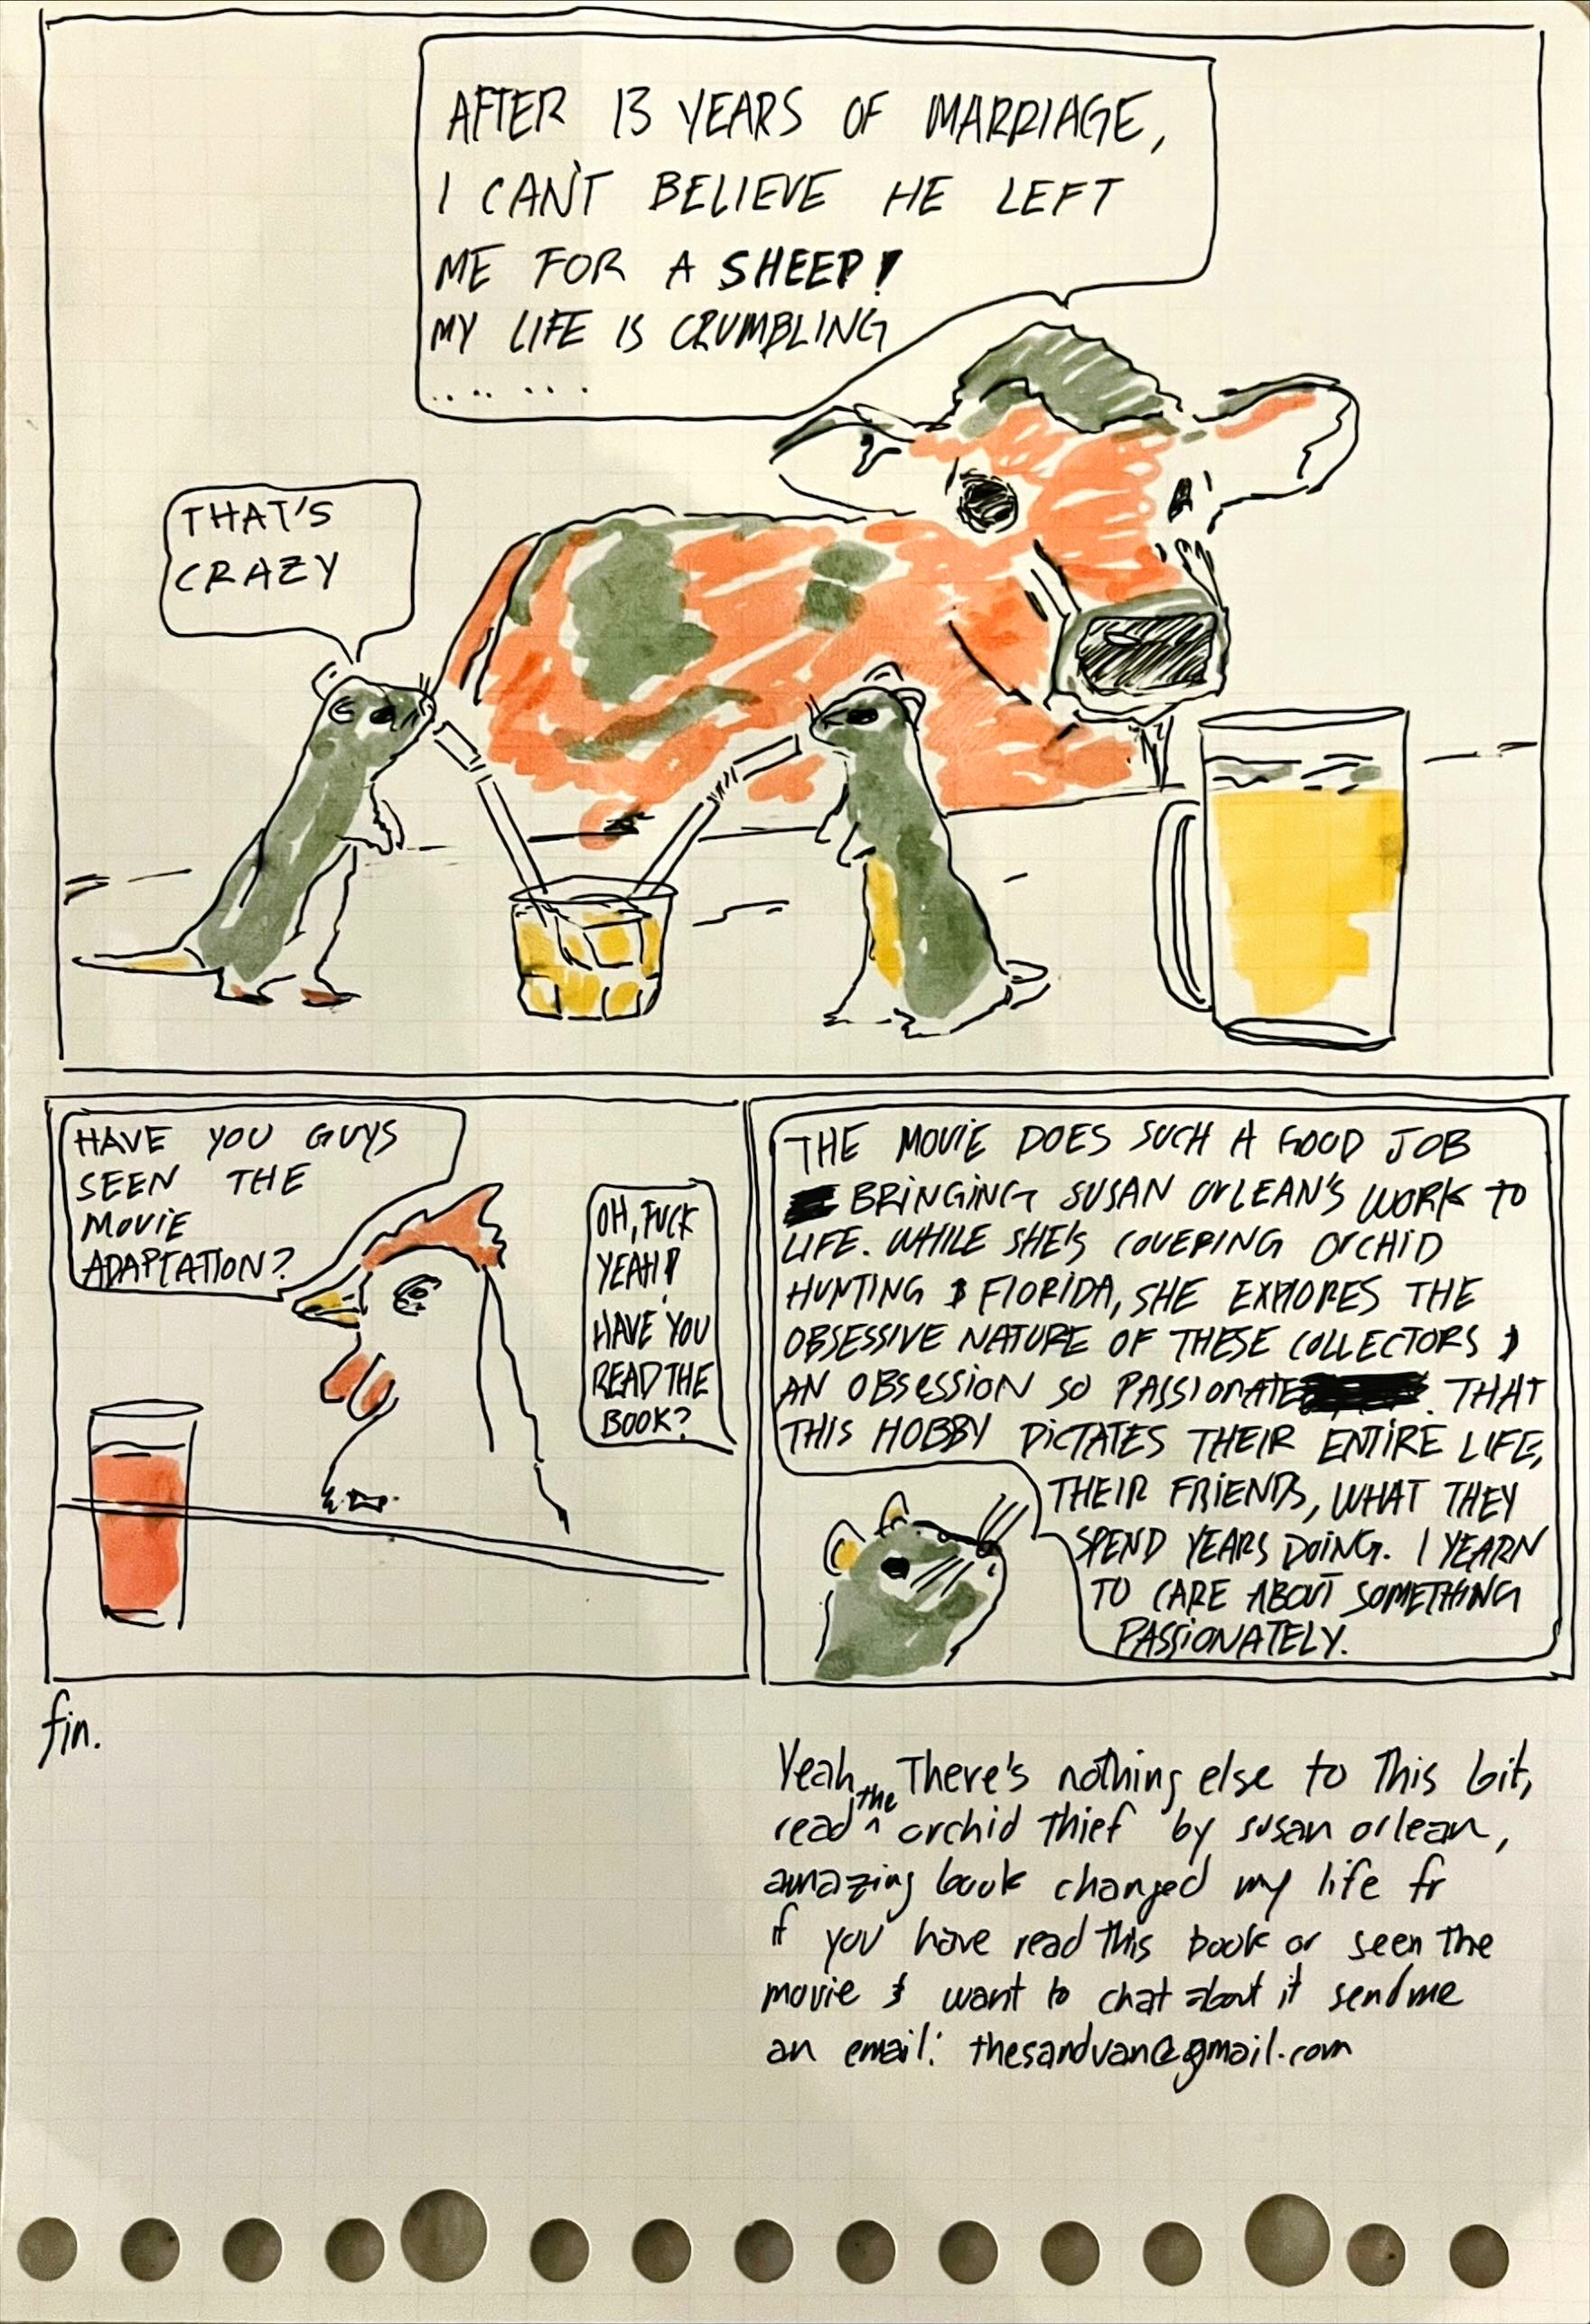 AFTER 13 YEARS OF MARRIAGE,
I CAN'T BELIEVE HE LEFT
ME FOR A SHEEP!
MY LIFE IS CRUMBLING
.. .. . . .
THAT'S
CRAZY
HAVE YOU GUYS
SEEN THE
MOVIE
ADAPTATION?
OH, FUCK
YEAH!
HAVE YOU
READ THE
BOOK?
THE MOVIE DOES SUCH A GOOD JOB
BRINGING SUSAN ORLEAN'S WORK TO
LIFE. WHILE SHE'S COVERING ORCHID
HUNTING & FLORIDA, SHE EXPLORES THE
OBSESSIVE NATURE OF THESE COLLECTORS &
AN OBSESSION SO PASSIONATE THAT
THIS HOBBY DICTATES THEIR ENTIRE LIFE,
THEIR FRIENDS, WHAT THEY
SPEND YEARS DOING. I YEARN
TO CARE ABOUT SOMETHING
PASSIONATELY.
fin.
Yeah, There's nothing else to this bit,
read the orchid thief by susan orlean,
amazing book changed my life fr
if you have read this book or seen the
movie & want to chat about it send me
an email: thesandvan@gmail.com